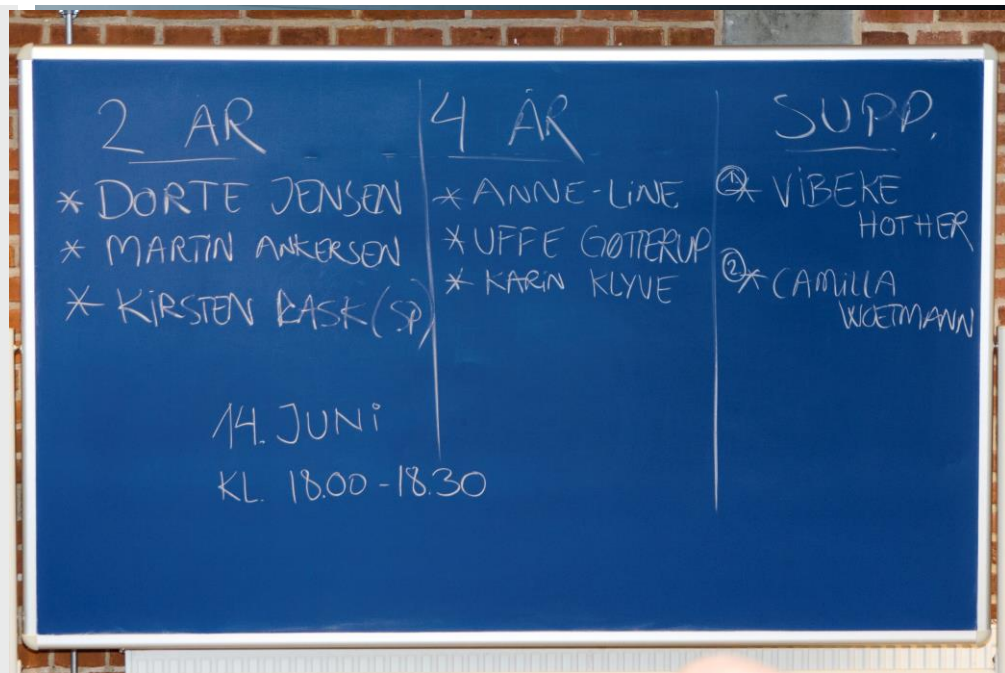 2 ÅR
* DORTE JENSEN
* MARTIN ANKERSEN
* KIRSTEN RASK (SP)
14. JUNI
KL. 18.00 - 18.30
4 ÅR
* ANNE-LINE
* UFFE GØTTERUP
* KARIN KLYVE
SUPP.
① * VIBEKE
HOTHER
② * CAMILLA
WOETMANN